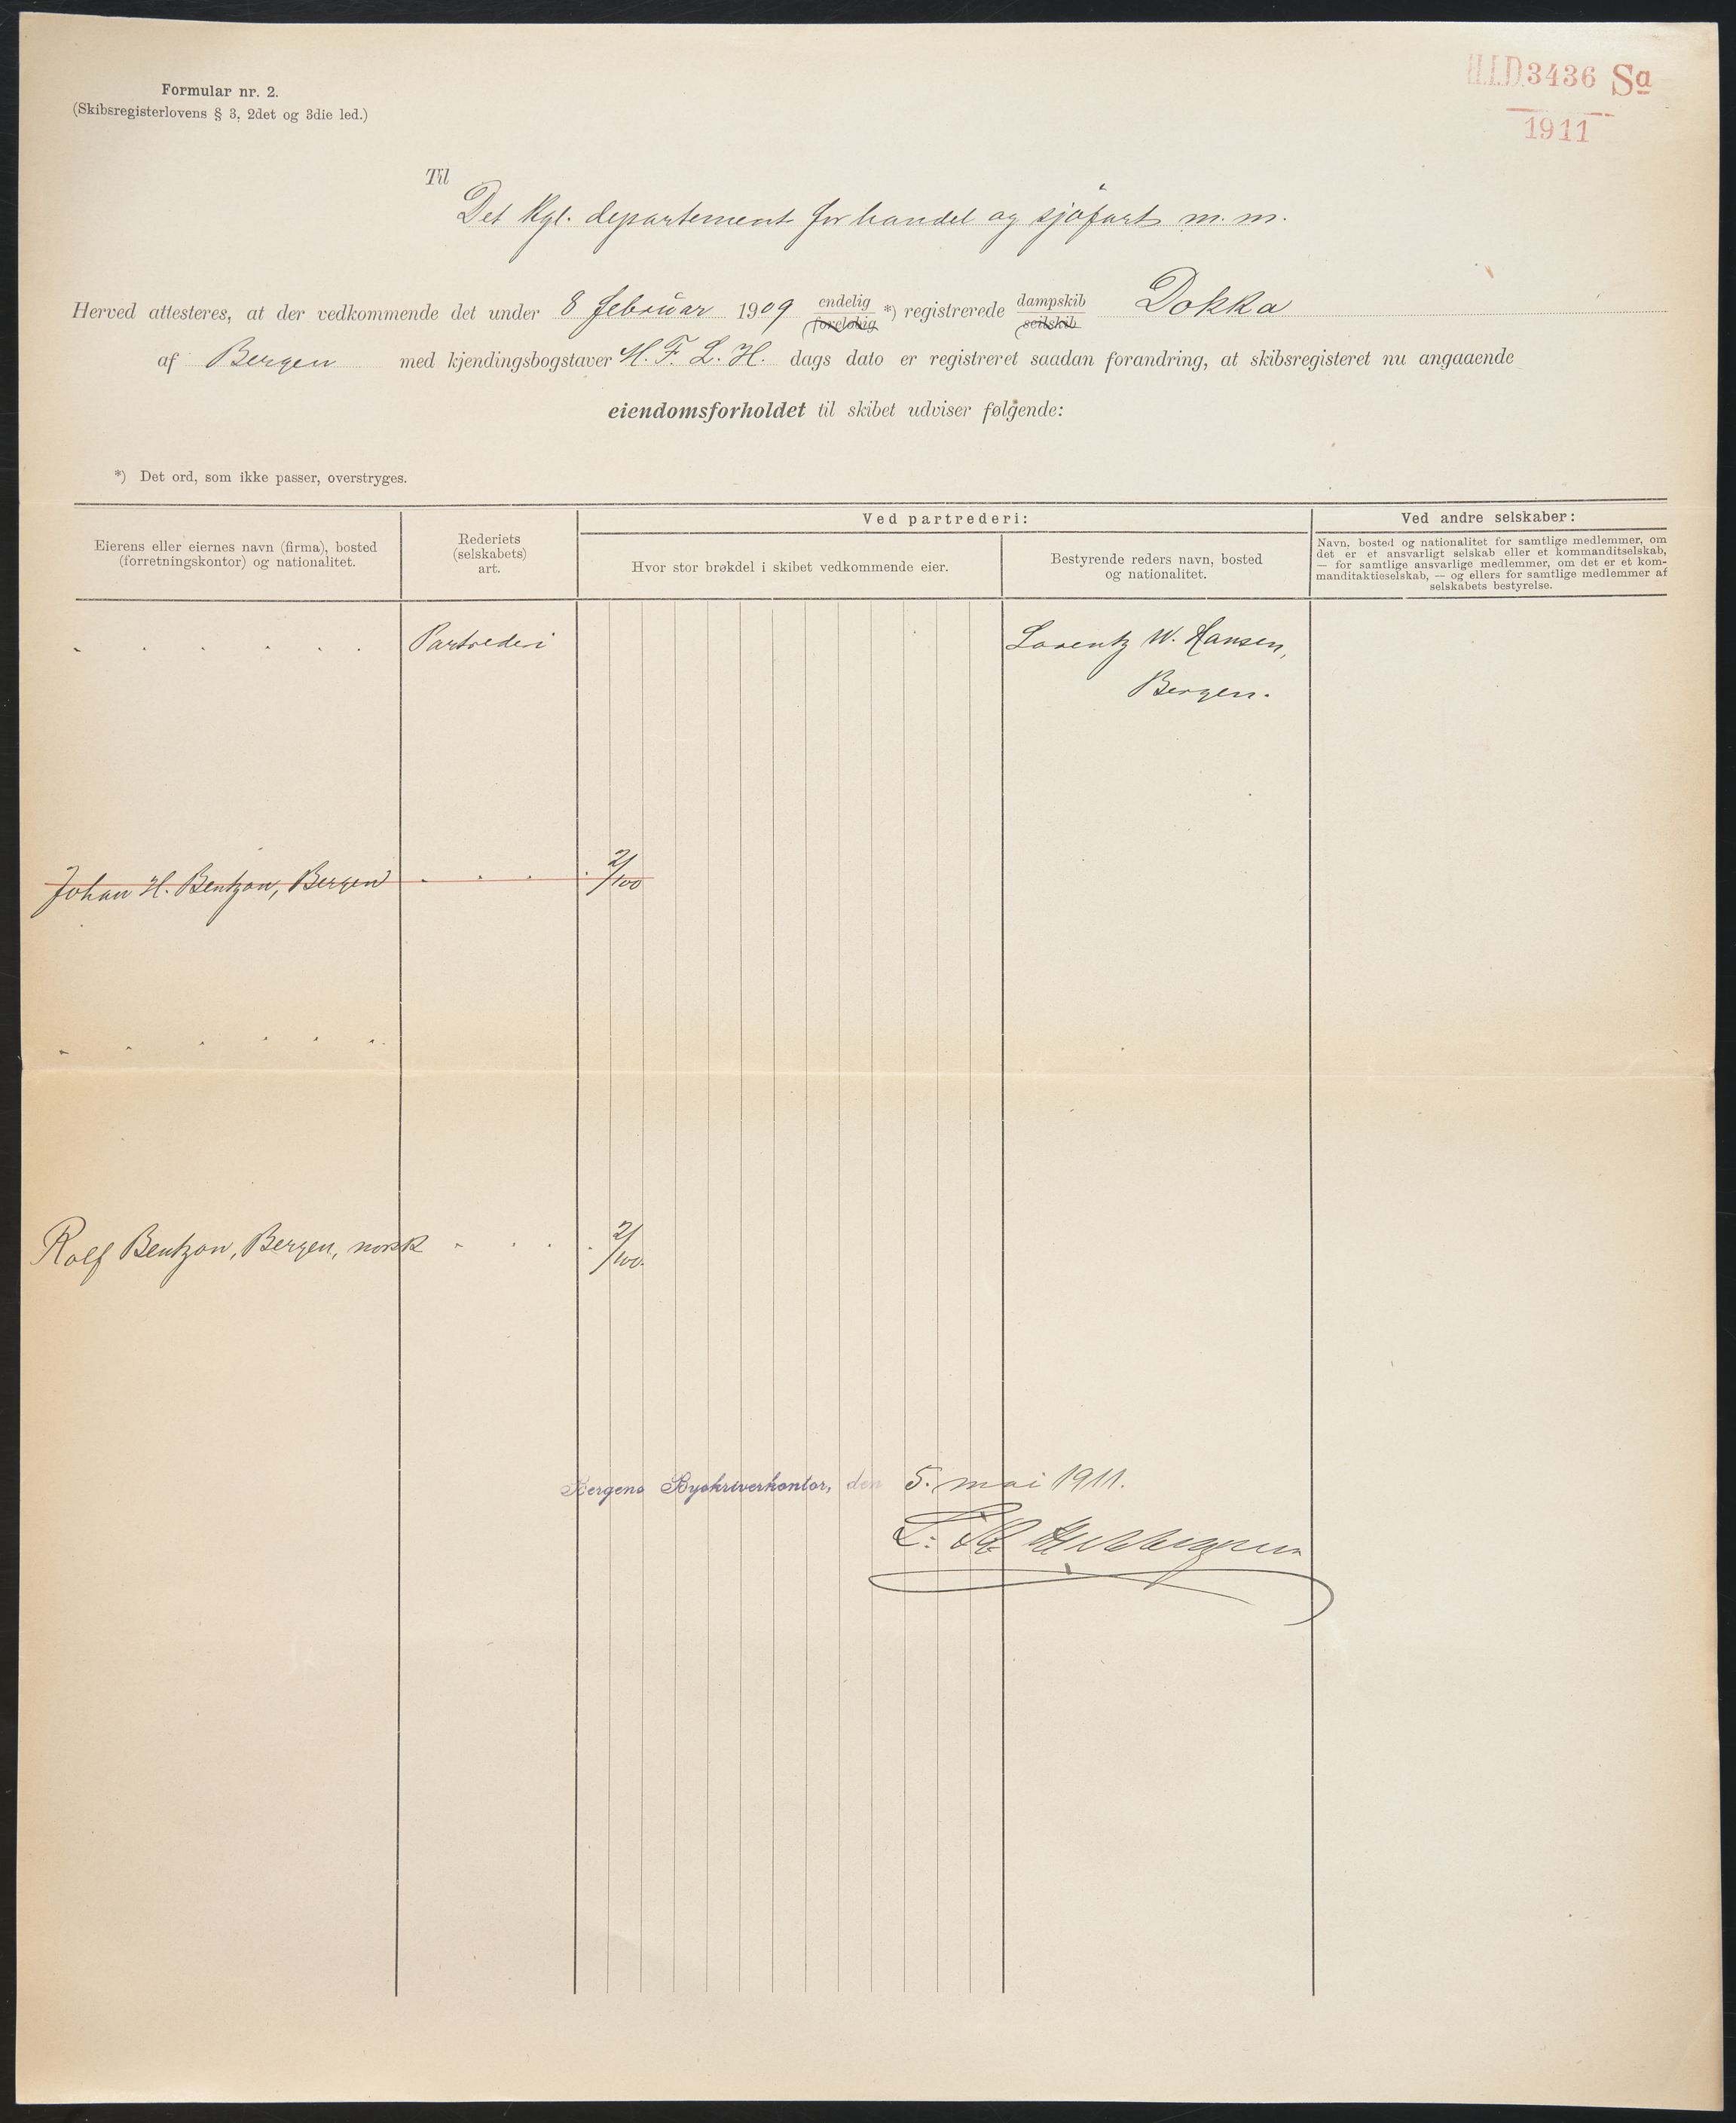 H.I.D. 3436 Sa
1911
Formular nr. 2.
(Skibsregisterlovens § 3, 2det og 3die led.)
Til
Det kgl. departement for handel og sjøfart m. m.
Herved attesteres, at der vedkommende det under 8 februar 1909 endelig foreløbig *) registrerede dampskib seilskib Dokka
af Bergen med kjendingsbogstaver M. F. L. H. dags dato er registreret saadan forandring, at skibsregisteret nu angaaende
eiendomsforholdet til skibet udviser følgende:
*) Det ord, som ikke passer, overstryges.
Eierens eller eiernes navn (firma), bosted
(forretningskontor) og nationalitet.
Rederiets
(selskabets)
art.
Ved partrederi:
Hvor stor brøkdel i skibet vedkommende eier.
Bestyrende reders navn, bosted
og nationalitet.
Ved andre selskaber:
Navn, bosted og nationalitet for samtlige medlemmer, om
det er et ansvarligt selskab eller et kommanditselskab,
— for samtlige ansvarlige medlemmer, om det er et kom-
manditaktieselskab, — og ellers for samtlige medlemmer af
selskabets bestyrelse.
Partrederi
Lorentz W. Hansen,
Bergen.
Johan H. Bentzon, Bergen 2/100
Rolf Bentzon, Bergen, norsk 2/100.
Bergens Byskriverkontor, den 5. mai 1911.